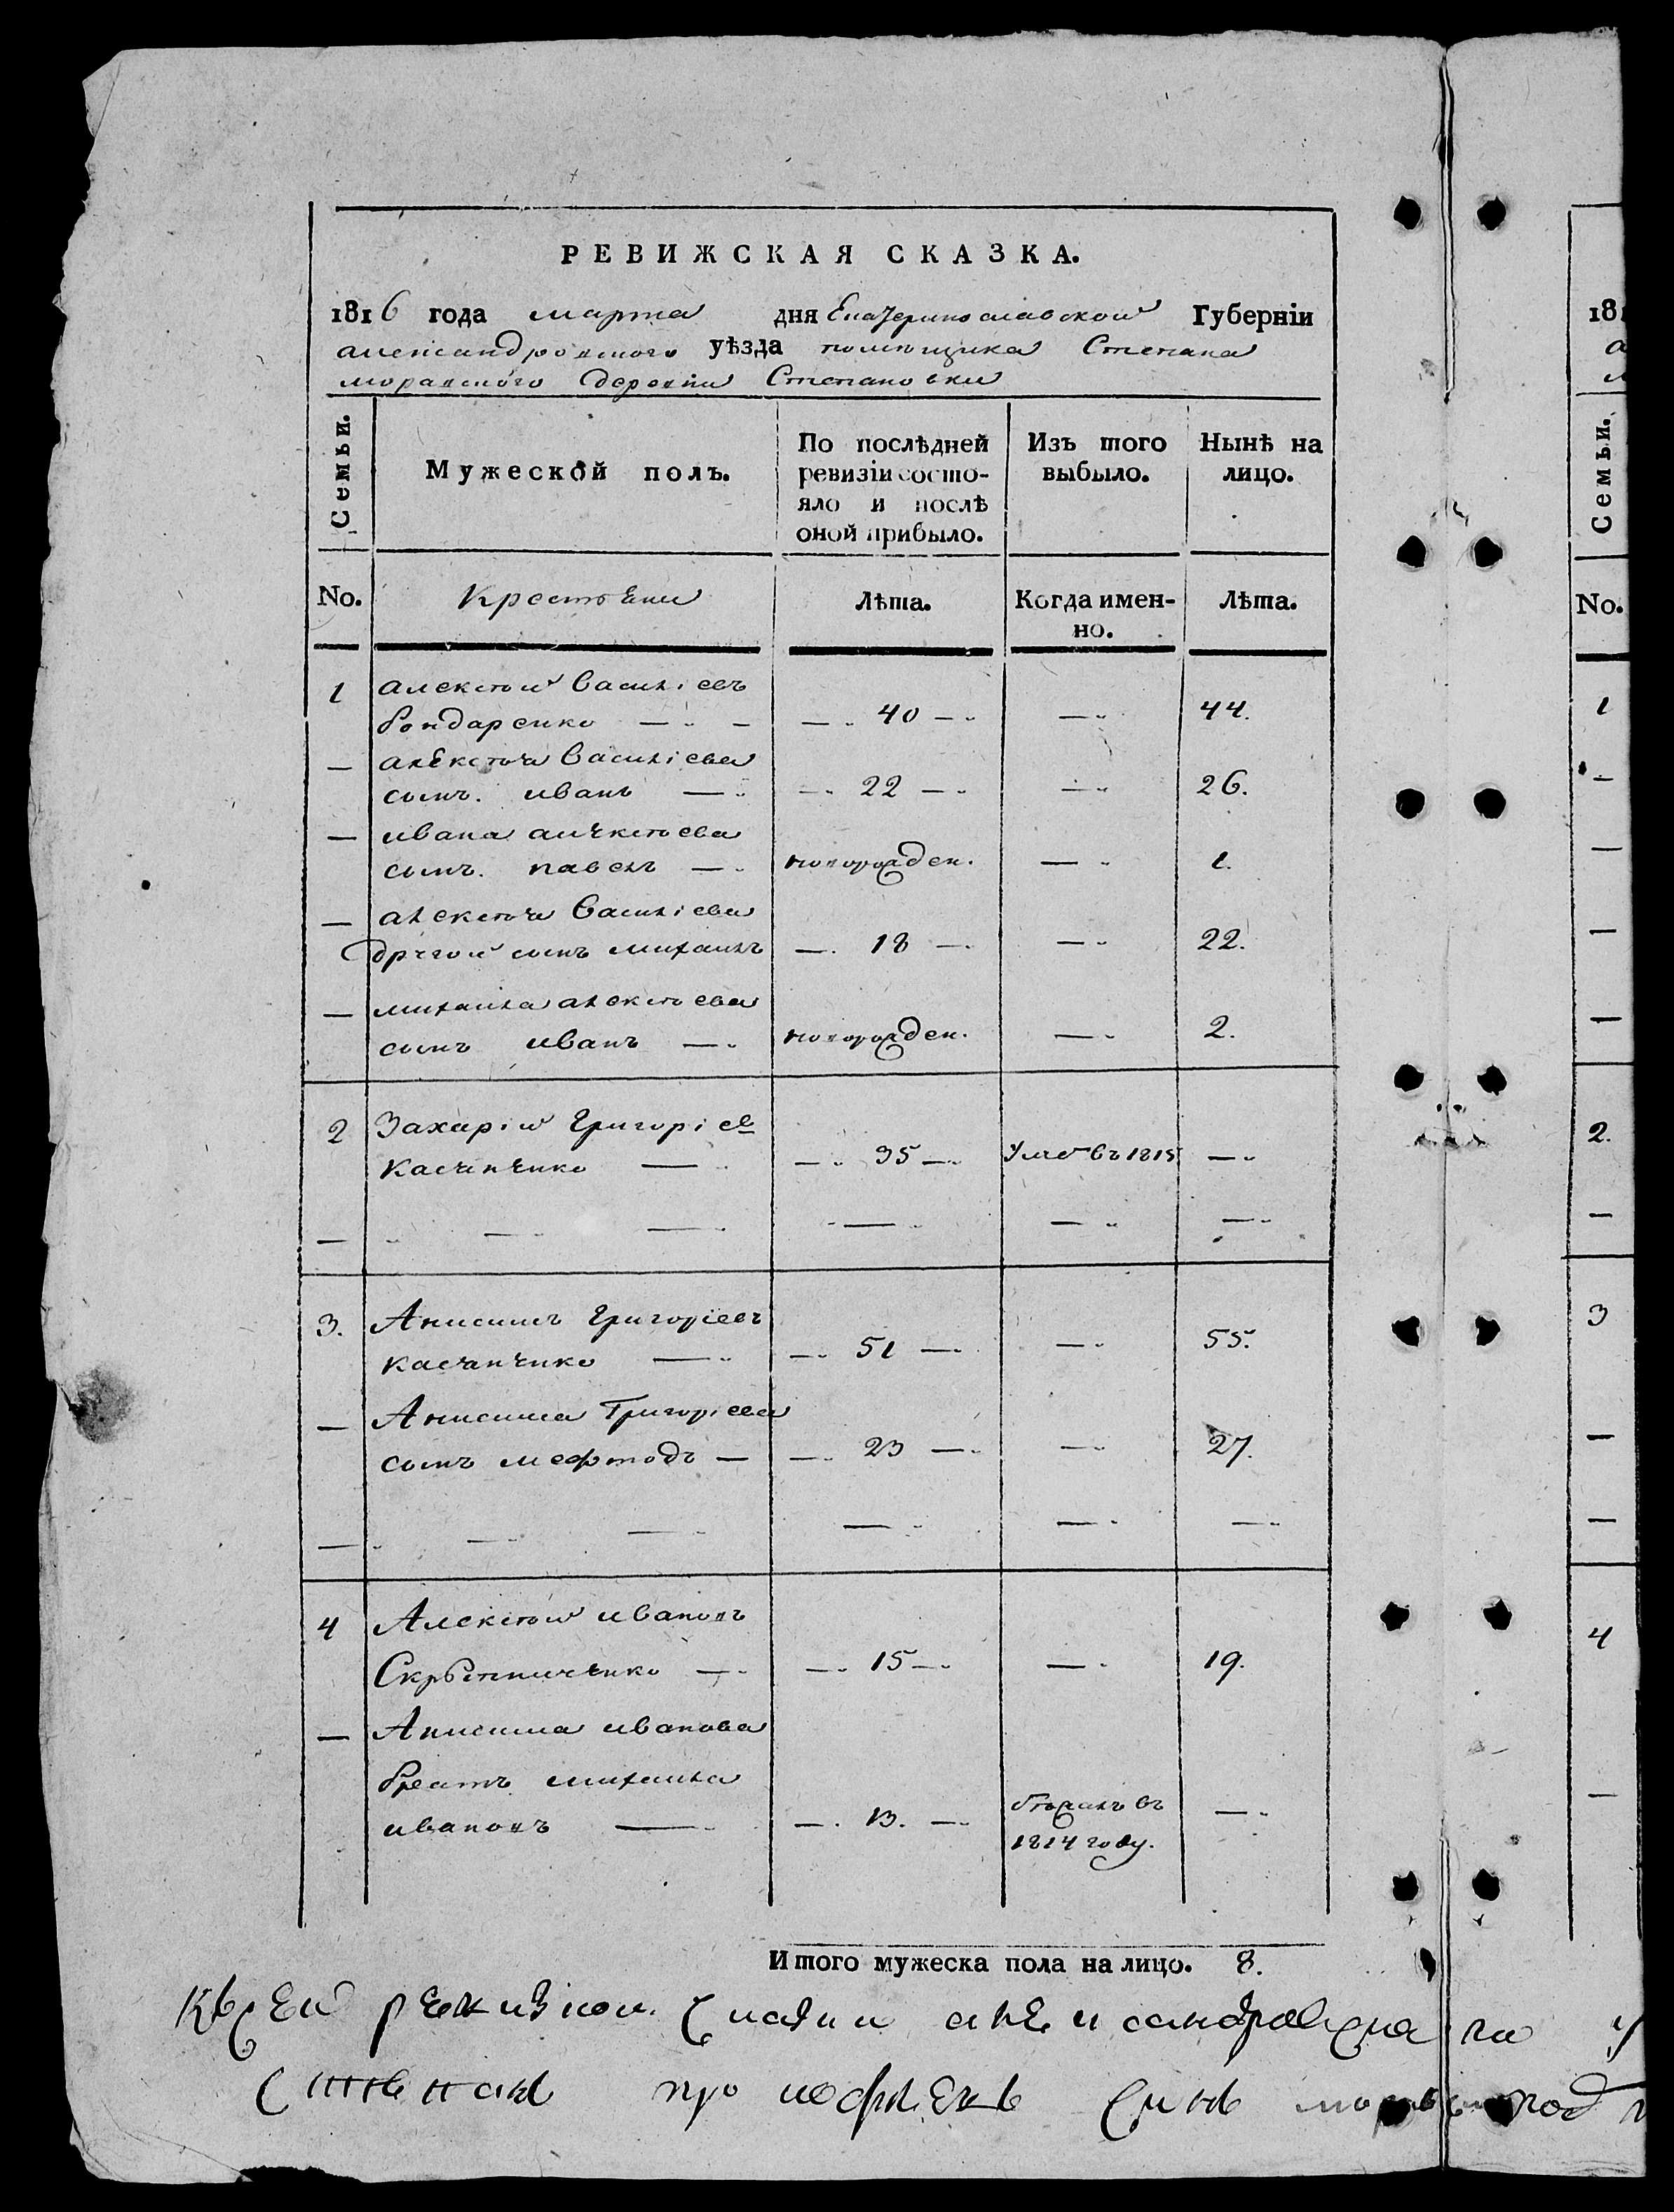 РЕВИЖСКАЯ СКАЗКА.
1816 года марта дня Екатеринославской Губерніи
александровского уѣзда помѣщика Степана
моравского деревни Степановки
Семьи. Мужеской полъ. По послѣдней ревизіи состояло и послѣ оной прибыло. Изъ того выбыло. Нынѣ на лицо.
No. Крестьяни Лѣта. Когда именно. Лѣта.
1 алексѣй Василіевъ
бондаренко — 40 — — 44.
— алексѣя Василіева
сынъ. иванъ — 22 — — 26.
— ивана алексѣева
сынъ. павелъ — новорожден. — 1.
— алексѣя Василіева
другой сынъ михаилъ — 18 — — 22.
— михаила алексѣева
сынъ иванъ — новорожден. — 2.
2 Захарій Григоріев
— 35 — Умеръ въ 1815 —
3. Анисимъ Григоріевъ
— 51 — — 55.
— Анисима Григоріева
сынъ мефтодъ — 23 — — 27.
4 Алексѣй ивановъ
Скрыпниченко — 15 — — 19.
— Анисима иванова
братъ михаила
ивановъ — 13. — бѣжалъ въ
1814 году. —
Итого мужеска пола на лицо. 8.
18
Семьи.
No.
1
2.
3
4